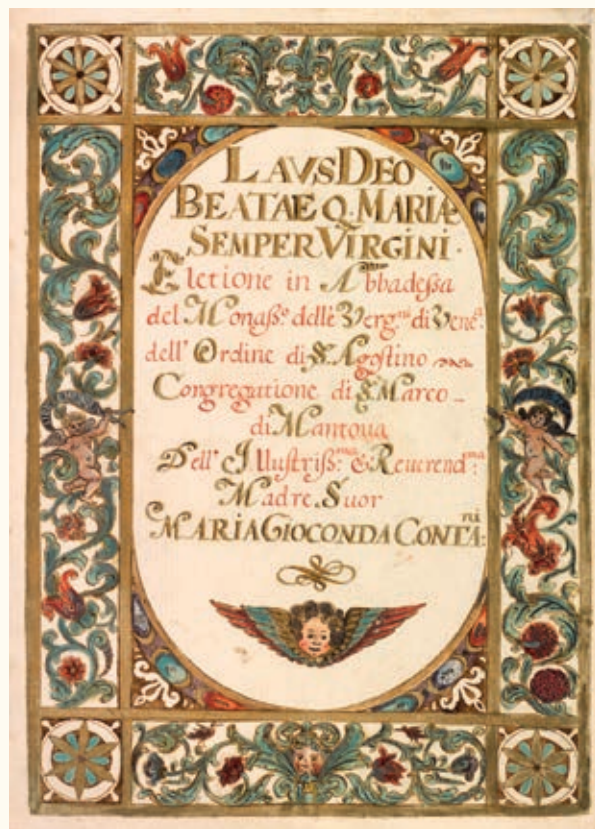 LAVS DEO
BEATAE Q. MARIÆ
SEMPER VIRGINI.
Eletione in Abbadessa
del Monass.º delle Verg.ni di Vene.ª
dell' Ordine di S. Agostino
Congregatione di S. Marco
di Mantova
Dell' Illustriss.ma & Reuerend.ma
Madre Suor
MARIA GIOCONDA CONTA:ni